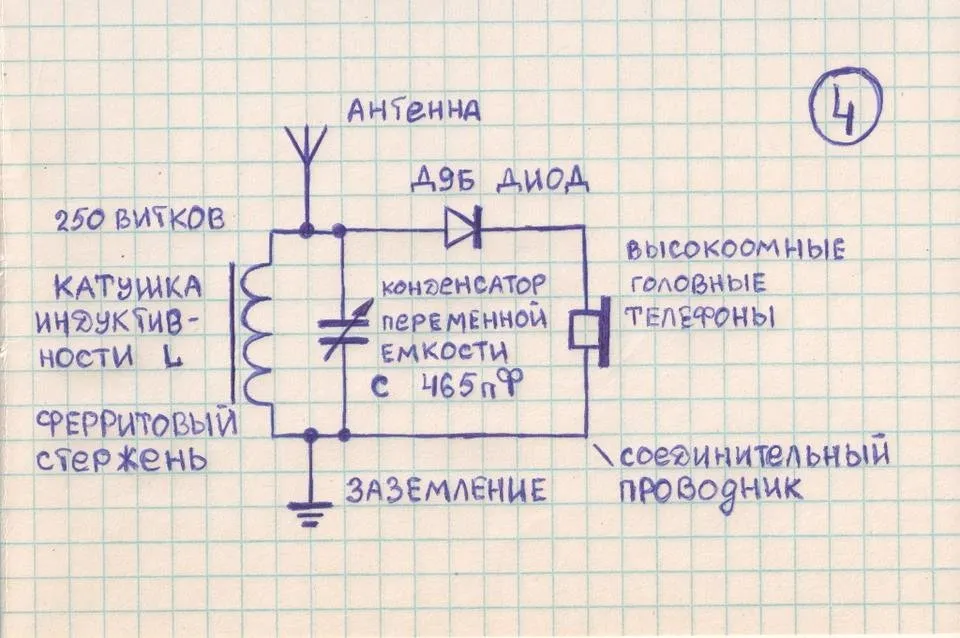 4
АНТЕННА
Д9Б ДИОД
250 ВИТКОВ
КАТУШКА
ИНДУКТИВ-
НОСТИ L
ФЕРРИТОВЫЙ
СТЕРЖЕНЬ
КОНДЕНСАТОР
ПЕРЕМЕННОЙ
ЕМКОСТИ
С 465 пФ
ВЫСОКООМНЫЕ
ГОЛОВНЫЕ
ТЕЛЕФОНЫ
ЗАЗЕМЛЕНИЕ
СОЕДИНИТЕЛЬНЫЙ
ПРОВОДНИК